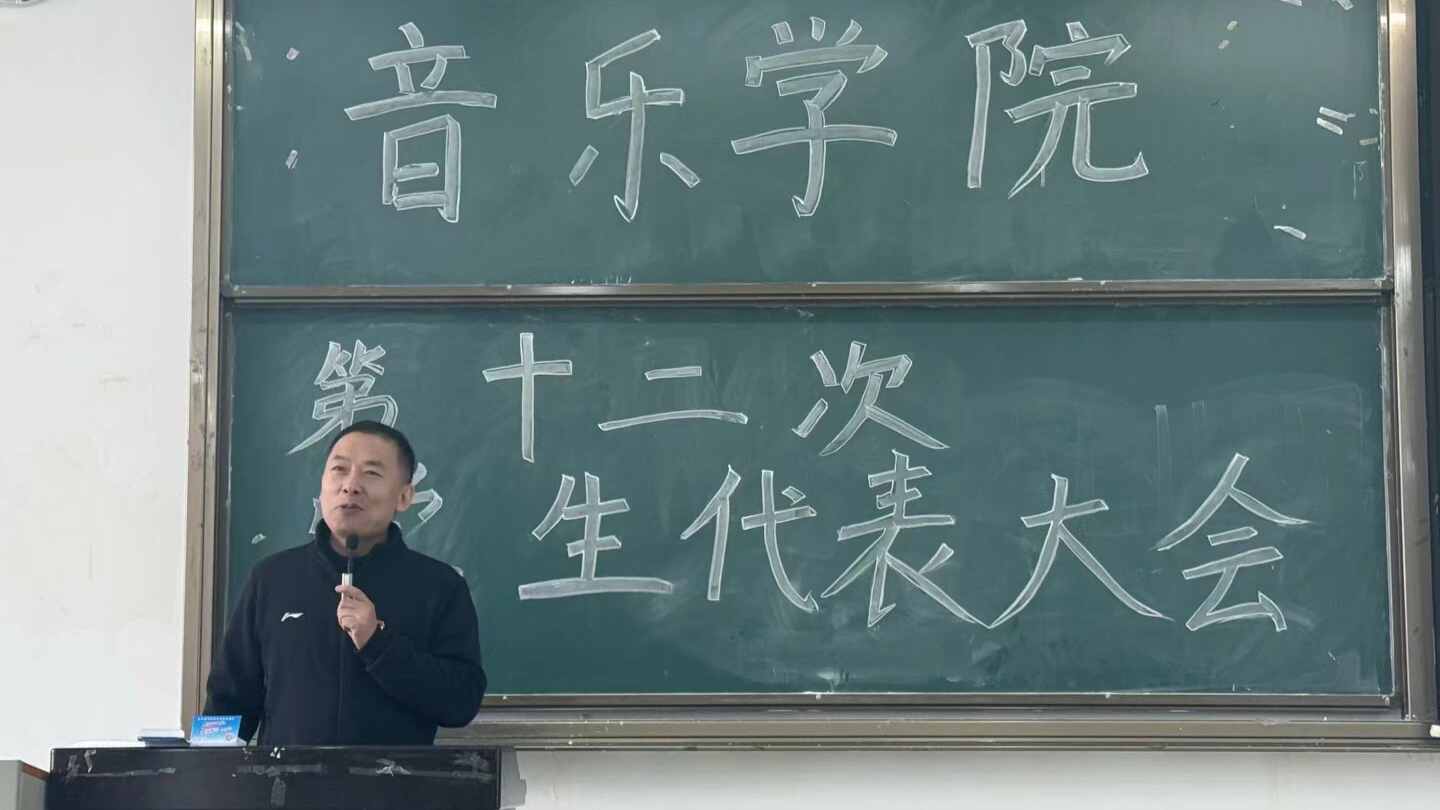 音乐学院
第十二次
学生代表大会